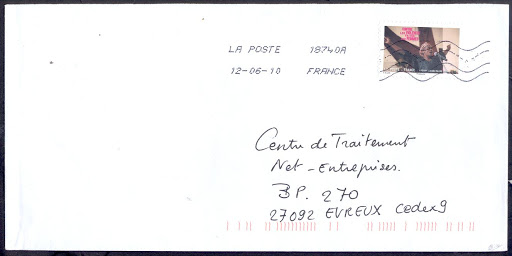 LA POSTE 18740A
12-06-10 FRANCE
Centre de Traitement
Net-Entreprises.
BP. 270
27092 EVREUX cedex9